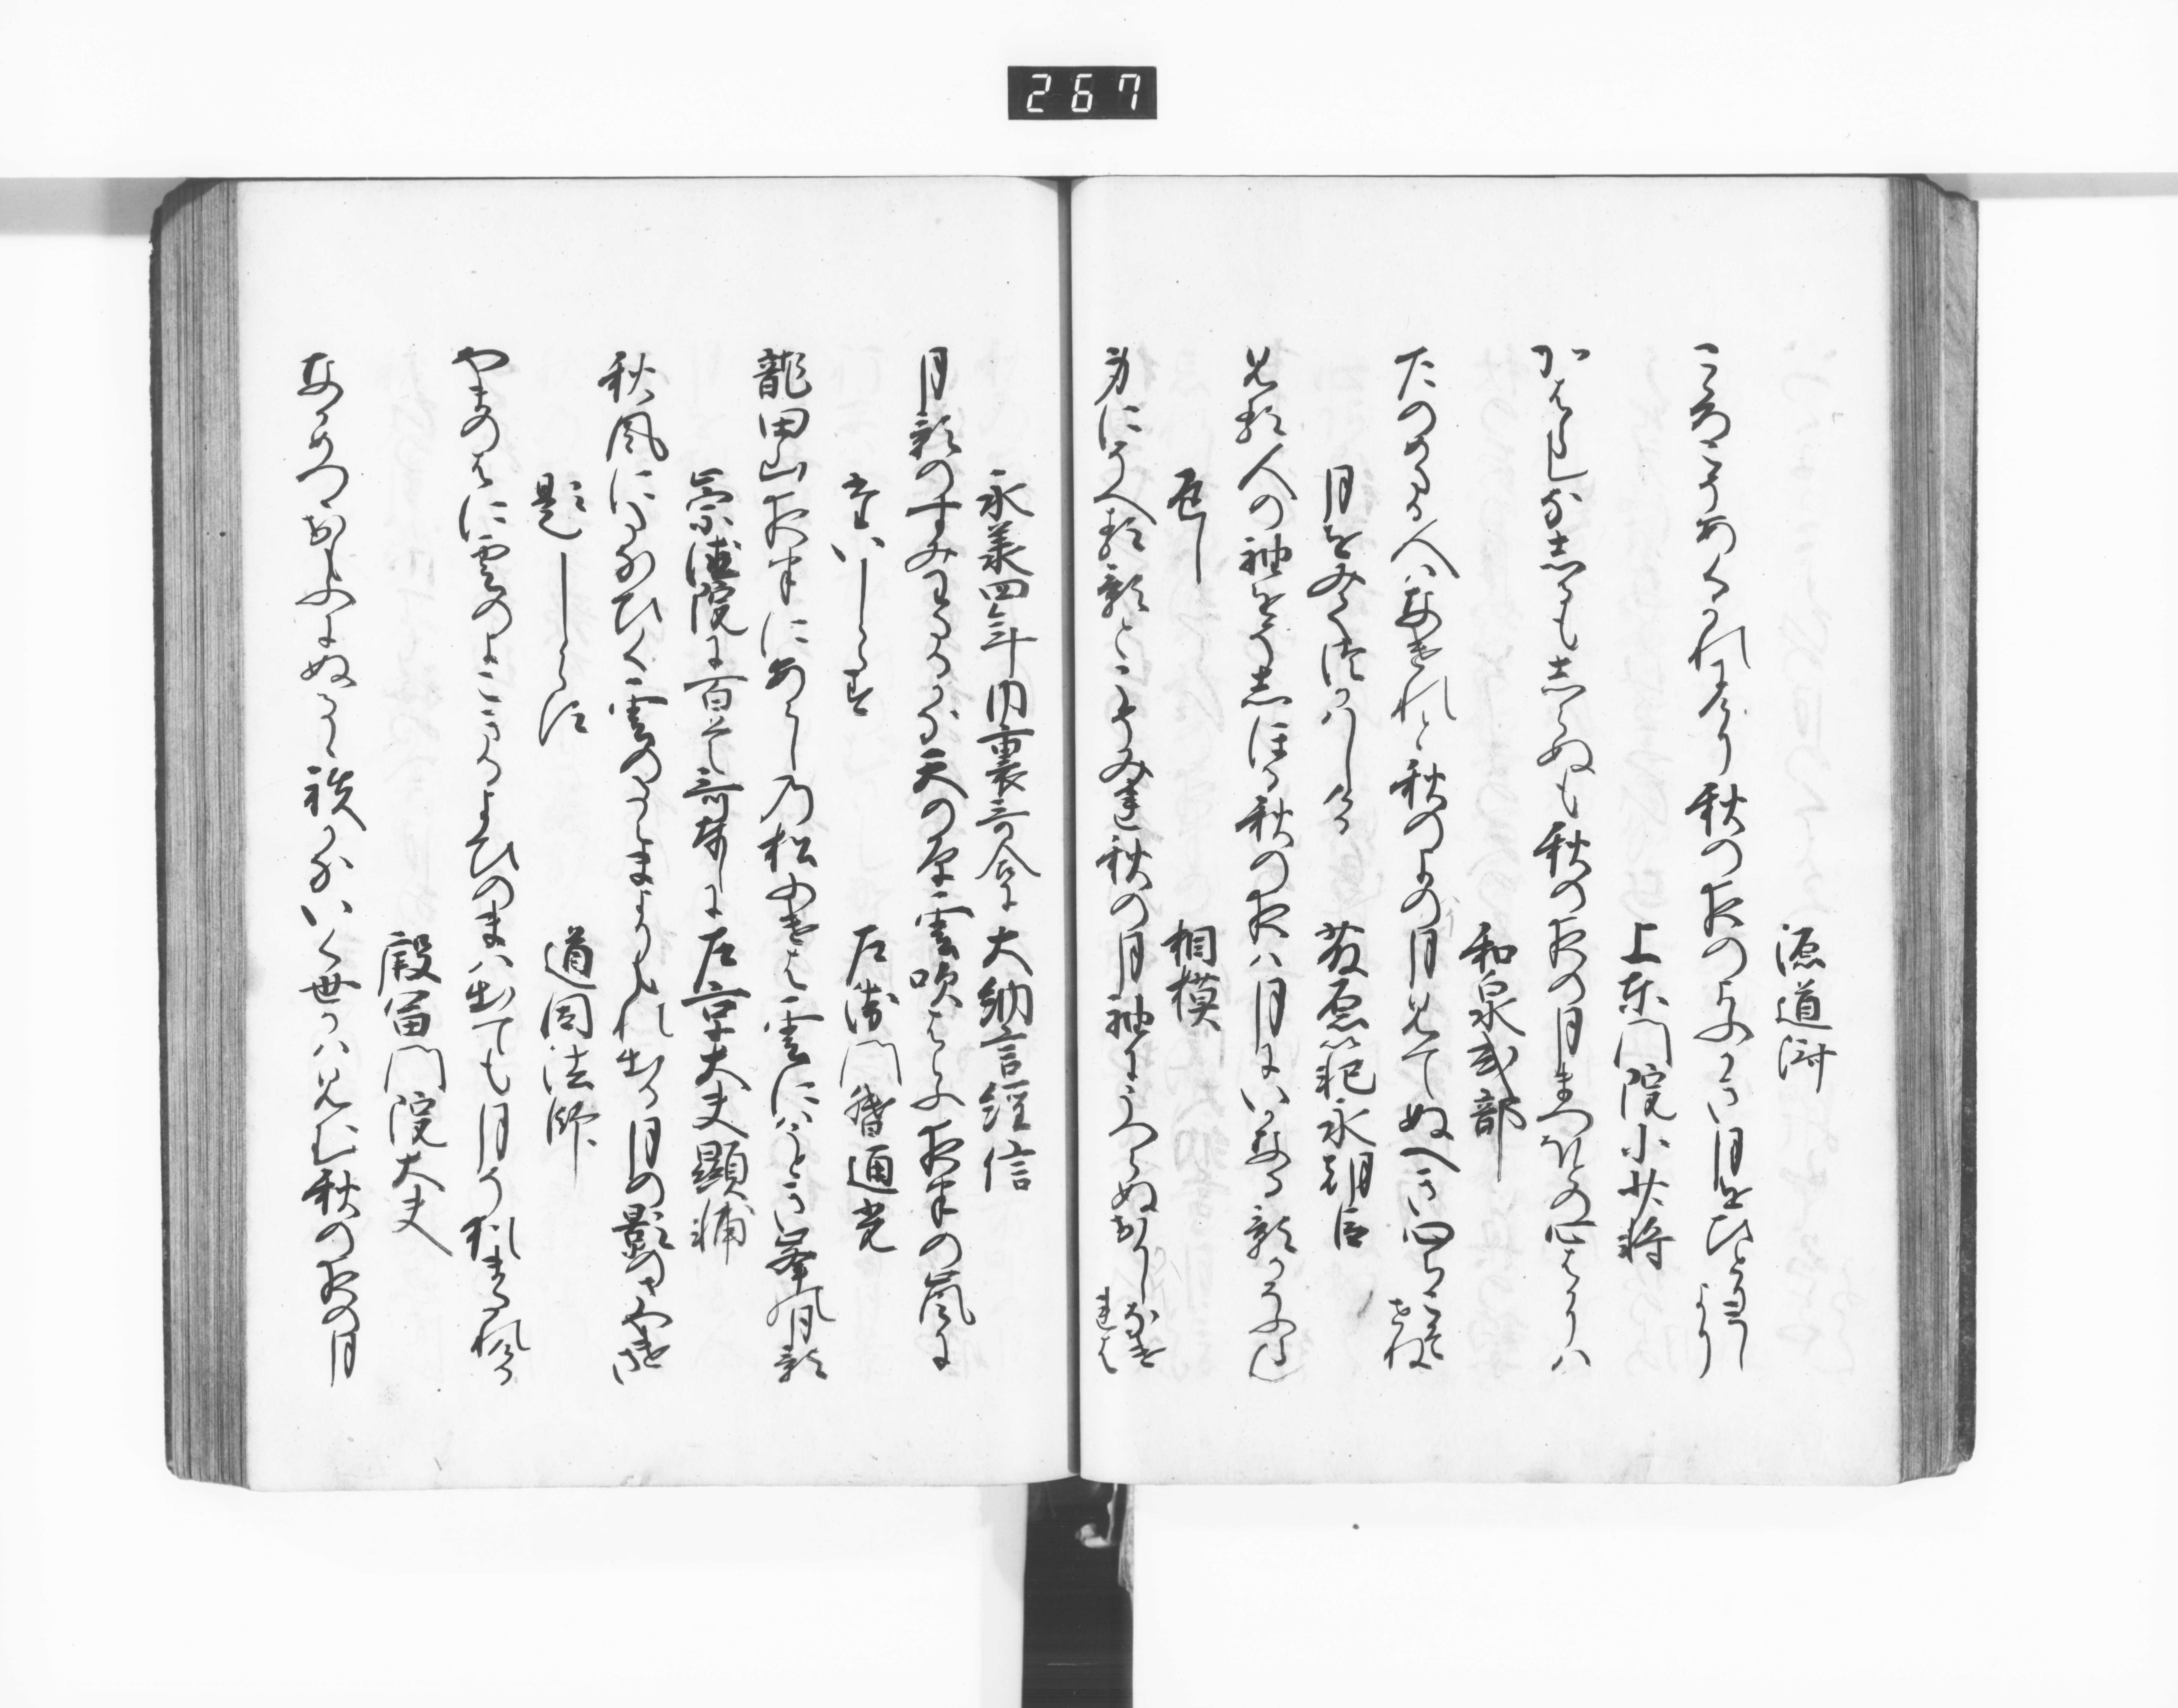 267
源道済
こゝろこそあくかれにけり秋の夜のよふかき月をひとりみしより
上東門院小少将
かはらしな志るも志らぬも秋の夜の月まつほとの心はかりは
和泉式部
たのめたる人はなけれと秋のよの月見てぬへき心ちこそせね
月をみてつかはしける
藤原範永朝臣
見る人の袖をそ志ほる秋の夜は月にいかなる影かそふらん
返し
相模
身にそへる影とこそみれ秋の月袖にうつらぬおりしなけれは
永承四年内裏哥合に
大納言経信
月影のすみわたるかな天の原雲吹はらふ夜半の嵐に
たいしらす
左衛門督通光
龍田山夜半にあらしの松ふけは雲にはうとき峯月影
崇徳院に百首哥奉しに
左京大夫顕輔
秋風にたなひく雲のたえまよりもれ出る月の影のさやけさ
題しらす
道因法師
やまのはに雲のよこきるよひのまは出ても月そ猶またれける
殷富門院大夫
なかめつゝおもふにぬるゝ袂かないく世かは見む秋の夜の月